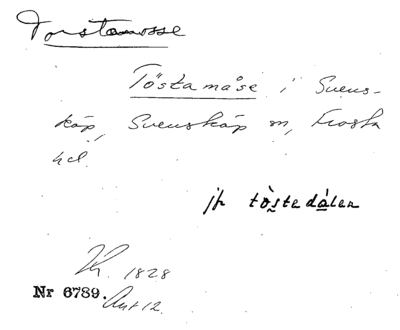 Torstamosse
Töstamåse i Svens-
köp, Svensköp sn, Frosta
hd.
jfr töstedalen
1828
Nr 6789. Ant 12.